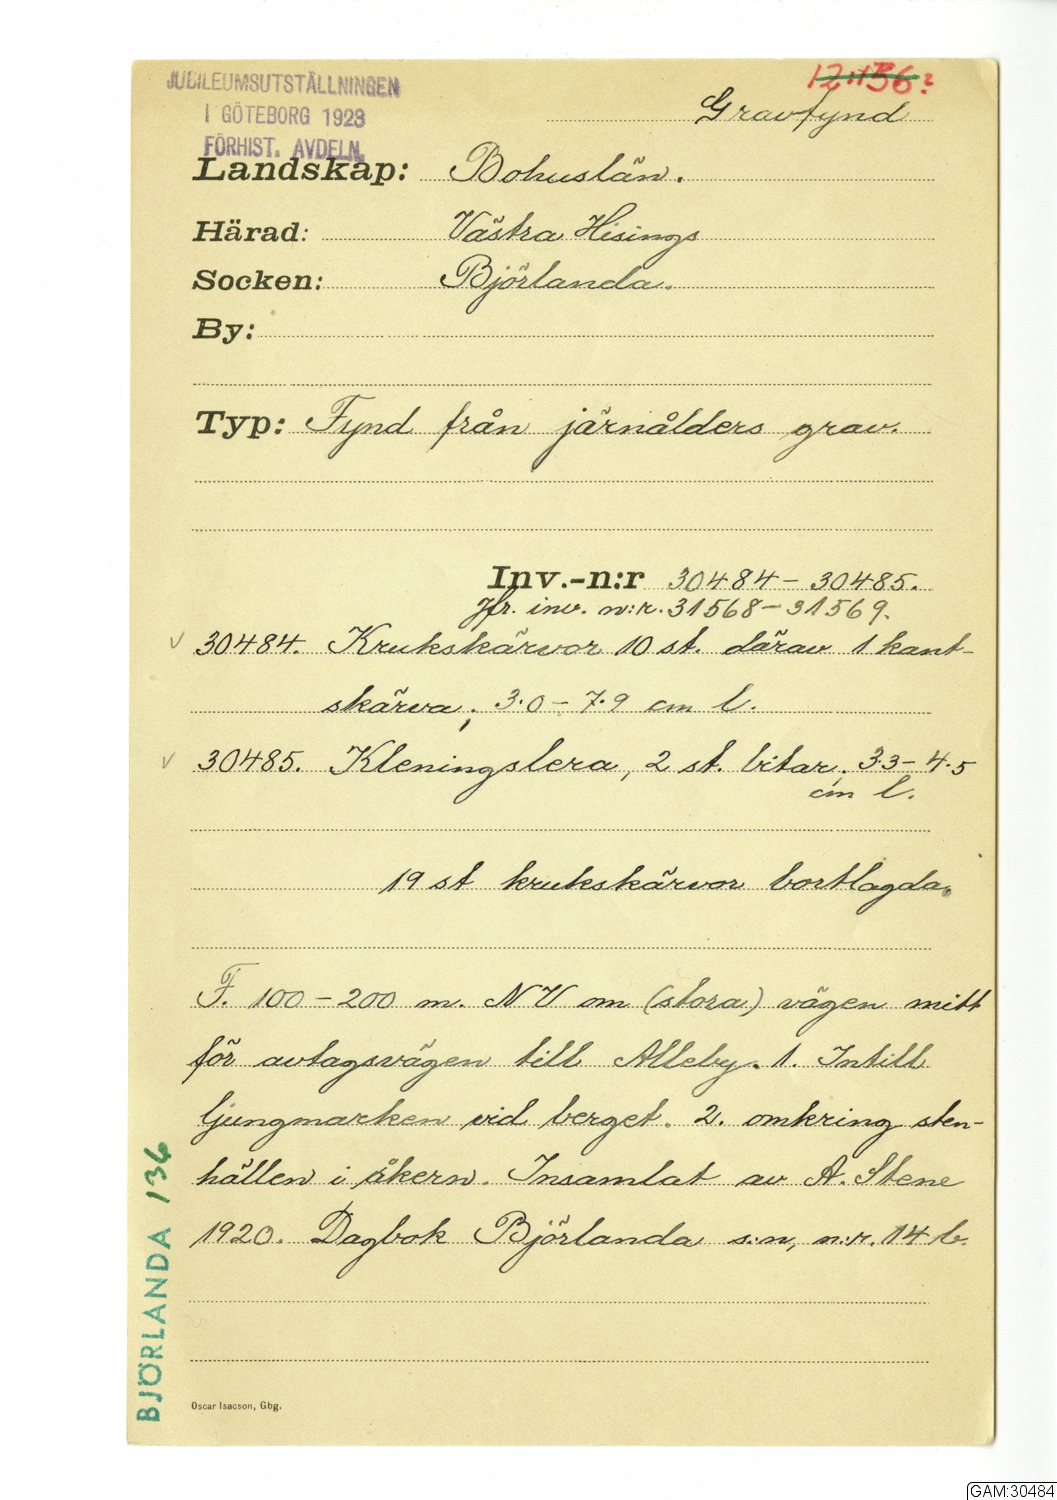 JUBILEUMSUTSTÄLLNINGEN
I GÖTEBORG 1923
FÖRHIST. AVDELN.
Gravfynd
Landskap: Bohuslän.
Härad: Västra Hisings
Socken: Björlanda.
By:
Typ: Fynd från järnålders grav.
Inv.-n:r 30484-30485.
Jfr. inv. n:r. 31568-31569.
v 30484. Krukskärvor 10 st. därav 1 kant-
skärva; 3.0-7.9 cm l.
v 30485. Kleningslera, 2 st. bitar; 3.3-4.5
cm l.
19 st krukskärvor bortlagda.
F. 100-200 m. NV om (stora) vägen mitt
för avtagsvägen till Alleby. 1. Intill
ljungmarken vid berget. 2. omkring sten-
hällen i åkern. Insamlat av A. Stene
1920. Dagbok Björlanda s:n, n:r. 14 b.
BJÖRLANDA 136
Oscar Isacson, Gbg.
GAM:30484